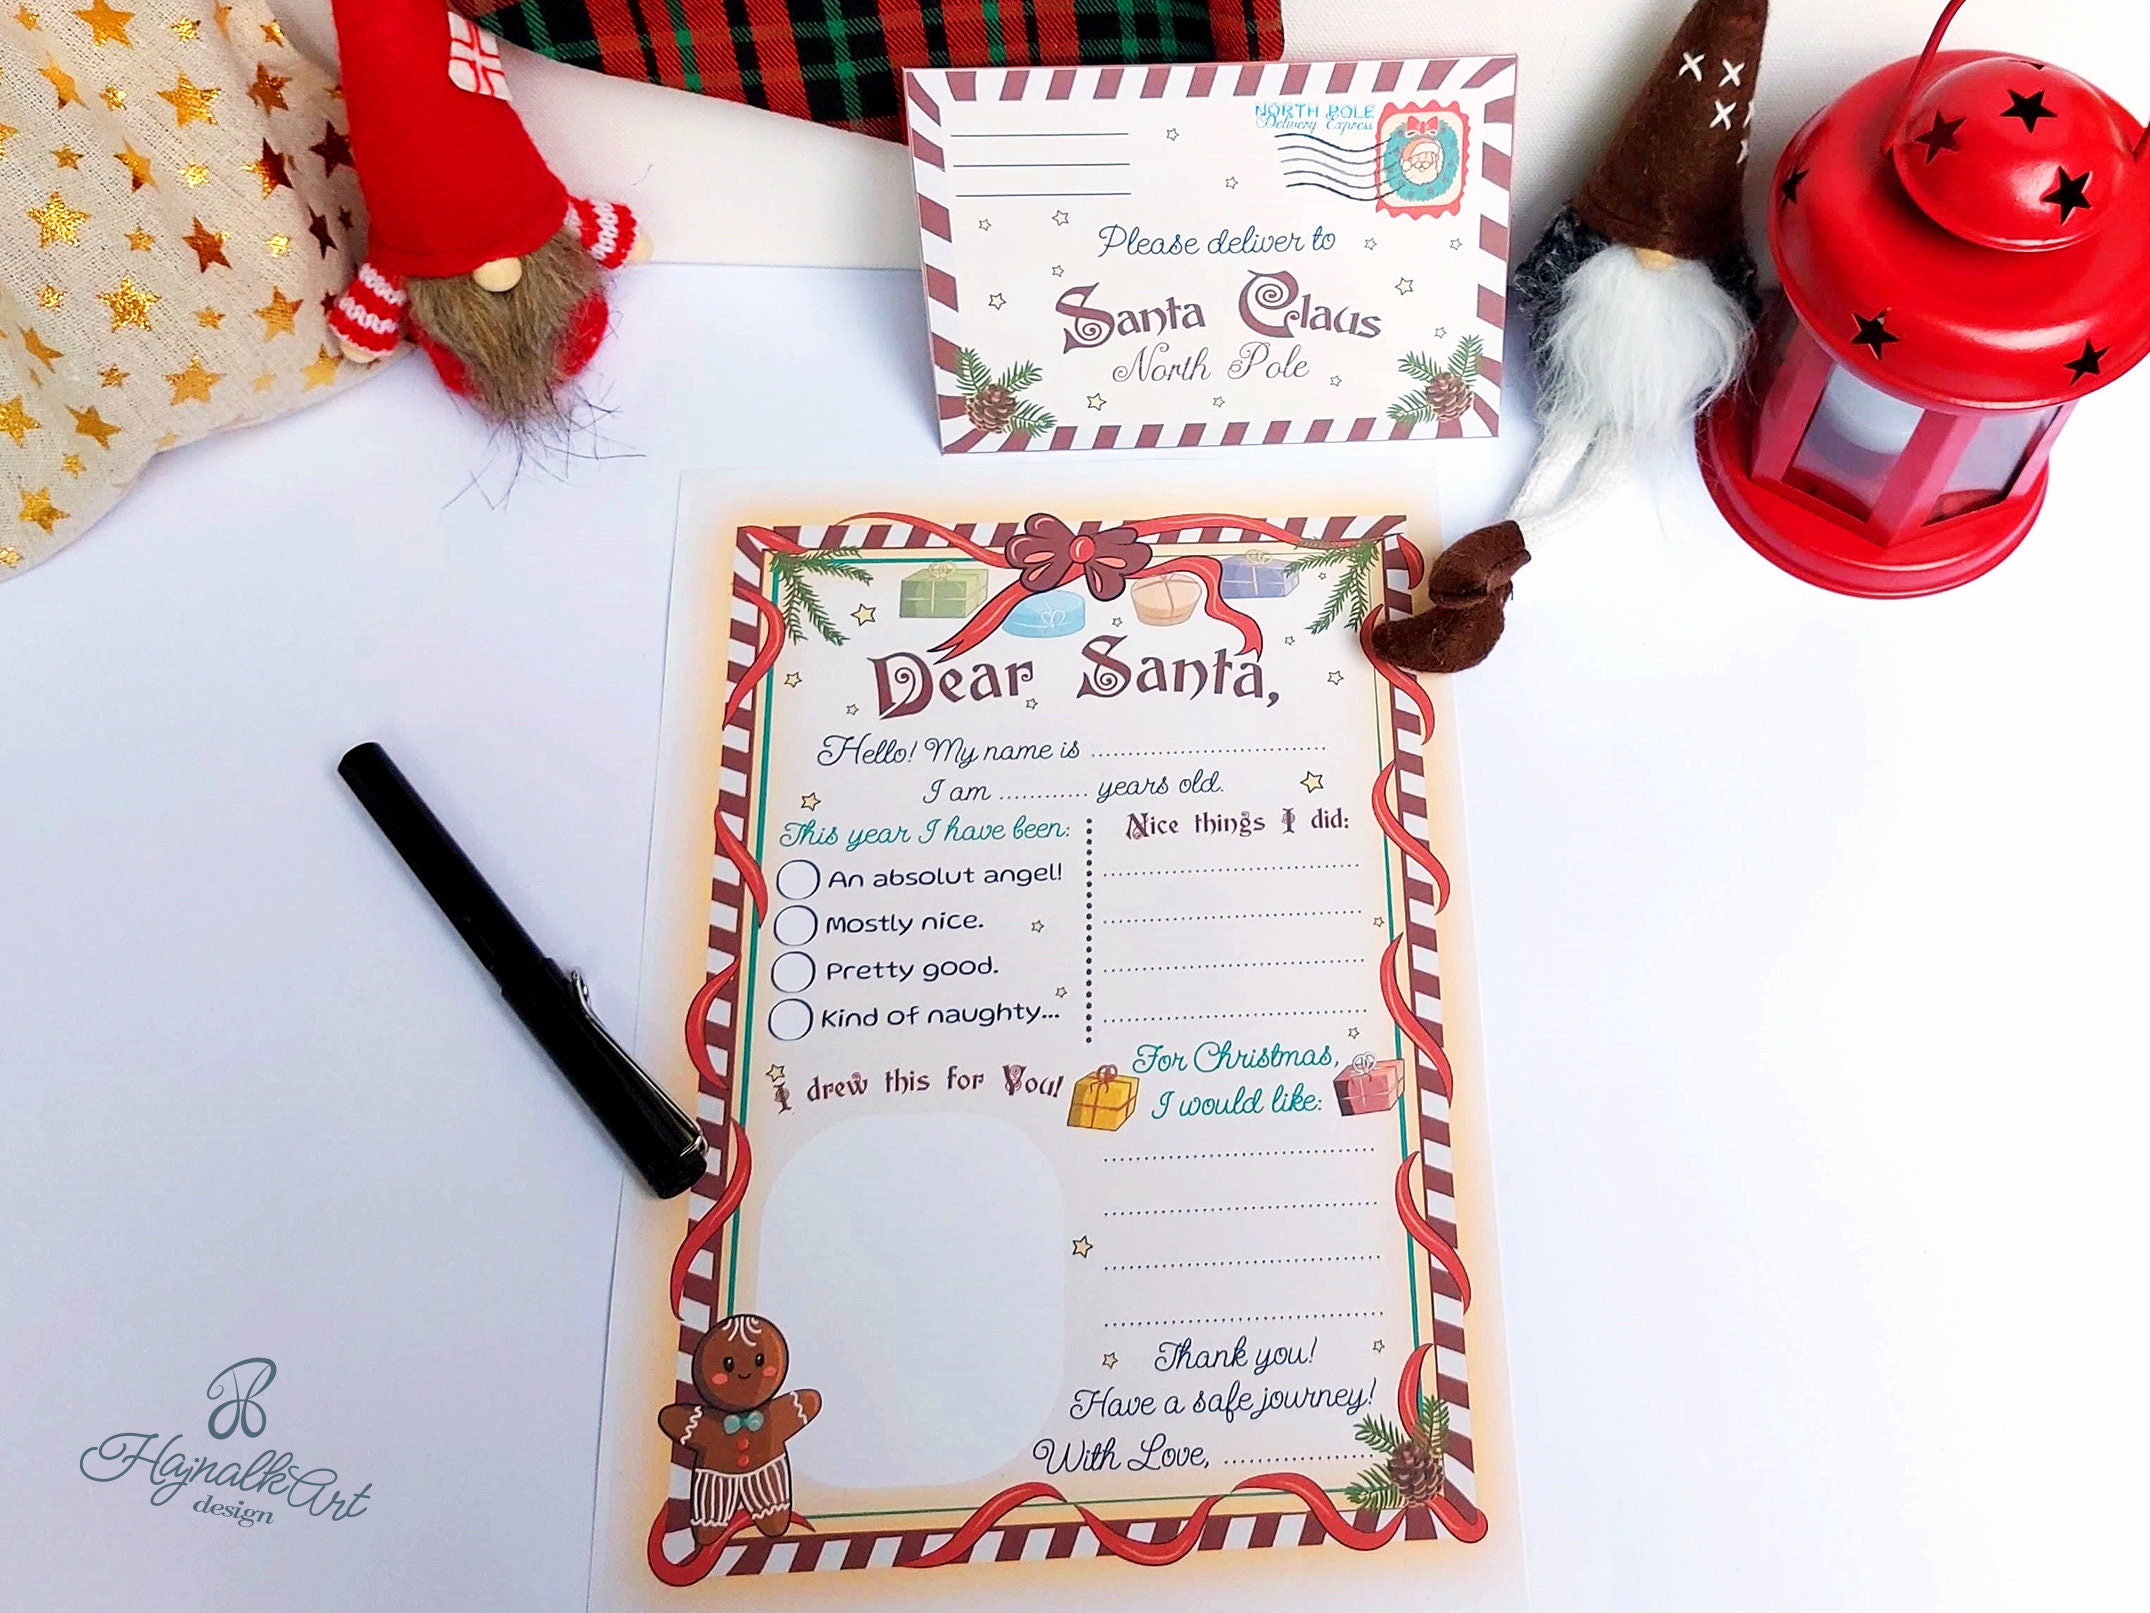 NORTH POLE
Delivery Express
Please deliver to
Santa Claus
North Pole
Dear Santa,
Hello! My name is ................................
I am ............ years old.
This year I have been:
An absolut angel!
Mostly nice.
Pretty good.
Kind of naughty...
Nice things I did:
I drew this for You!
For Christmas,
I would like:
Thank you!
Have a safe journey!
With Love, ....................
HajnalkArt
design